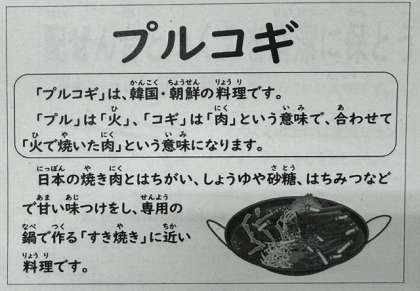 プルコギ
「プルコギ」は、韓国・朝鮮の料理です。
「プル」は「火」、「コギ」は「肉」という意味で、合わせて
「火で焼いた肉」という意味になります。
日本の焼き肉とはちがい、しょうゆや砂糖、はちみつなど
で甘い味つけをし、専用の
鍋で作る「すき焼き」に近い
料理です。